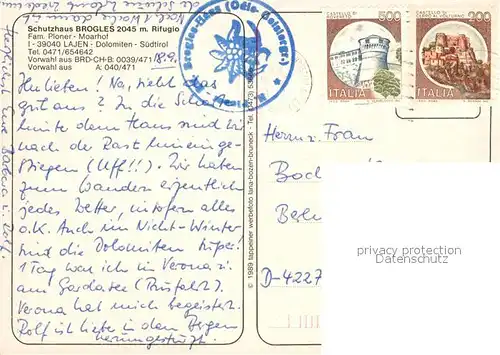 Schutzhaus BROGLES 2045 m. Rifugio
Fam. Ploner - Moarhof
I - 39040 LAJEN - Dolomiten - Südtirol
Tel. 0471/654642
Vorwahl aus BRD-CH-B: 0039/471
Vorwahl aus A: 040/471
Ihr Lieben! Na, sieht das
gut aus? In die Scharte
hinte dem Haus sind wir
nach der Rast hineinge-
stiegen (Uff!!). Wir haben
zum Wandern eigentlich
jedes Wetter, insofern alles
o.k. Auch im Nicht-Winter
sind die Dolomiten super.
1 Tag war ich in Verona u.
am Gardasee
Verona hat mich begeistert.
Rolf ist in den Bergen
herumgestürzt.
Brogles-Haus (Odle-Geislergr.)
© 1989 tappeiner werbefoto lana-bozen-bruneck - Tel.
CASTELLO DI
ROVERETO
500
ITALIA
CASTELLO DI
CERRO AL VOLTURNO
200
ITALIA
Herrn u. Frau
D-4227
privacy protection
Datenschutz